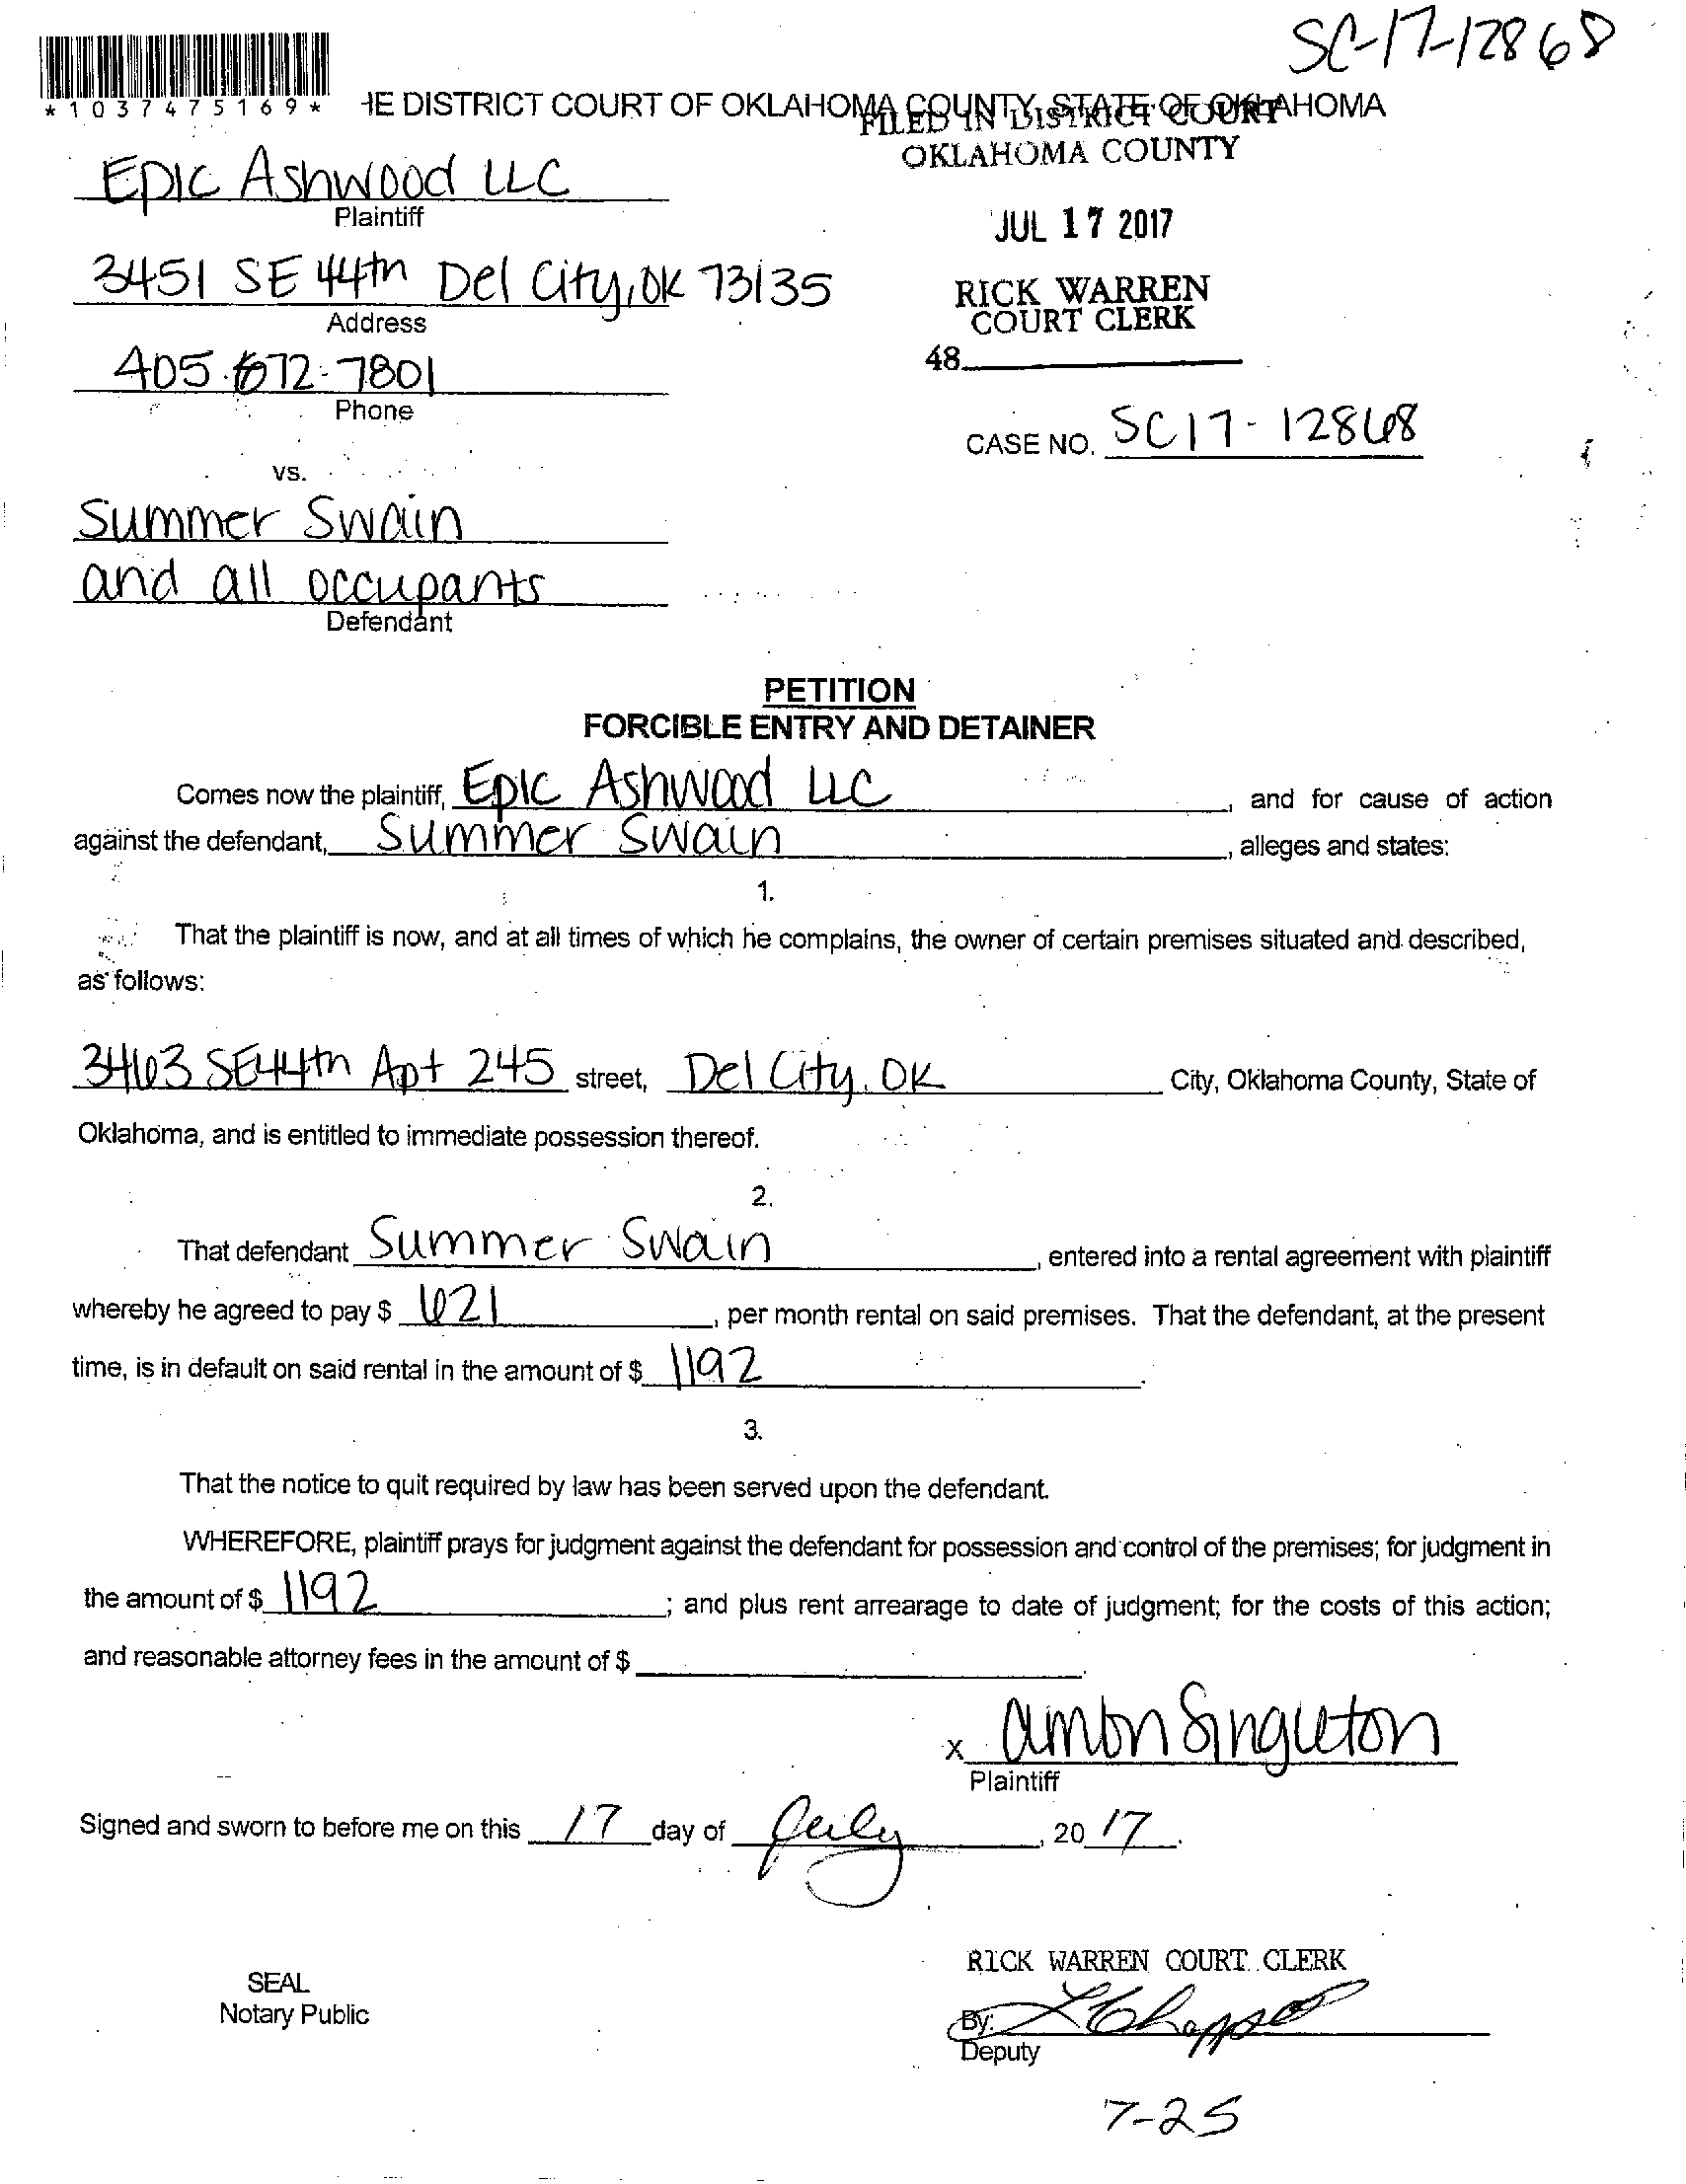 SC-17-12868
*1037475169*
HE DISTRICT COURT OF OKLAHOMA COUNTY, STATE OF OKLAHOMA
FILED IN DISTRICT COURT
OKLAHOMA COUNTY
Epic Ashwood LLC
Plaintiff
JUL 17 2017
3451 SE 44th Del City, OK 73135
Address
RICK WARREN
COURT CLERK
405-672-7801
Phone
48
CASE NO. SC17-12868
vs.
Summer Swain
and all occupants
Defendant
PETITION
FORCIBLE ENTRY AND DETAINER
Comes now the plaintiff, Epic Ashwood LLC, and for cause of action
against the defendant, Summer Swain, alleges and states:
1.
That the plaintiff is now, and at all times of which he complains, the owner of certain premises situated and described,
as follows:
3463 SE44th Apt 245 street, Del City, OK City, Oklahoma County, State of
Oklahoma, and is entitled to immediate possession thereof.
2.
That defendant Summer Swain, entered into a rental agreement with plaintiff
whereby he agreed to pay $ 621, per month rental on said premises. That the defendant, at the present
time, is in default on said rental in the amount of $ 1192.
3.
That the notice to quit required by law has been served upon the defendant.
WHEREFORE, plaintiff prays for judgment against the defendant for possession and control of the premises; for judgment in
the amount of $ 1192; and plus rent arrearage to date of judgment; for the costs of this action;
and reasonable attorney fees in the amount of $
x Singleton
Plaintiff
Signed and sworn to before me on this 17 day of July, 20 17.
RICK WARREN COURT CLERK
SEAL
Notary Public
By:
Deputy
7-25